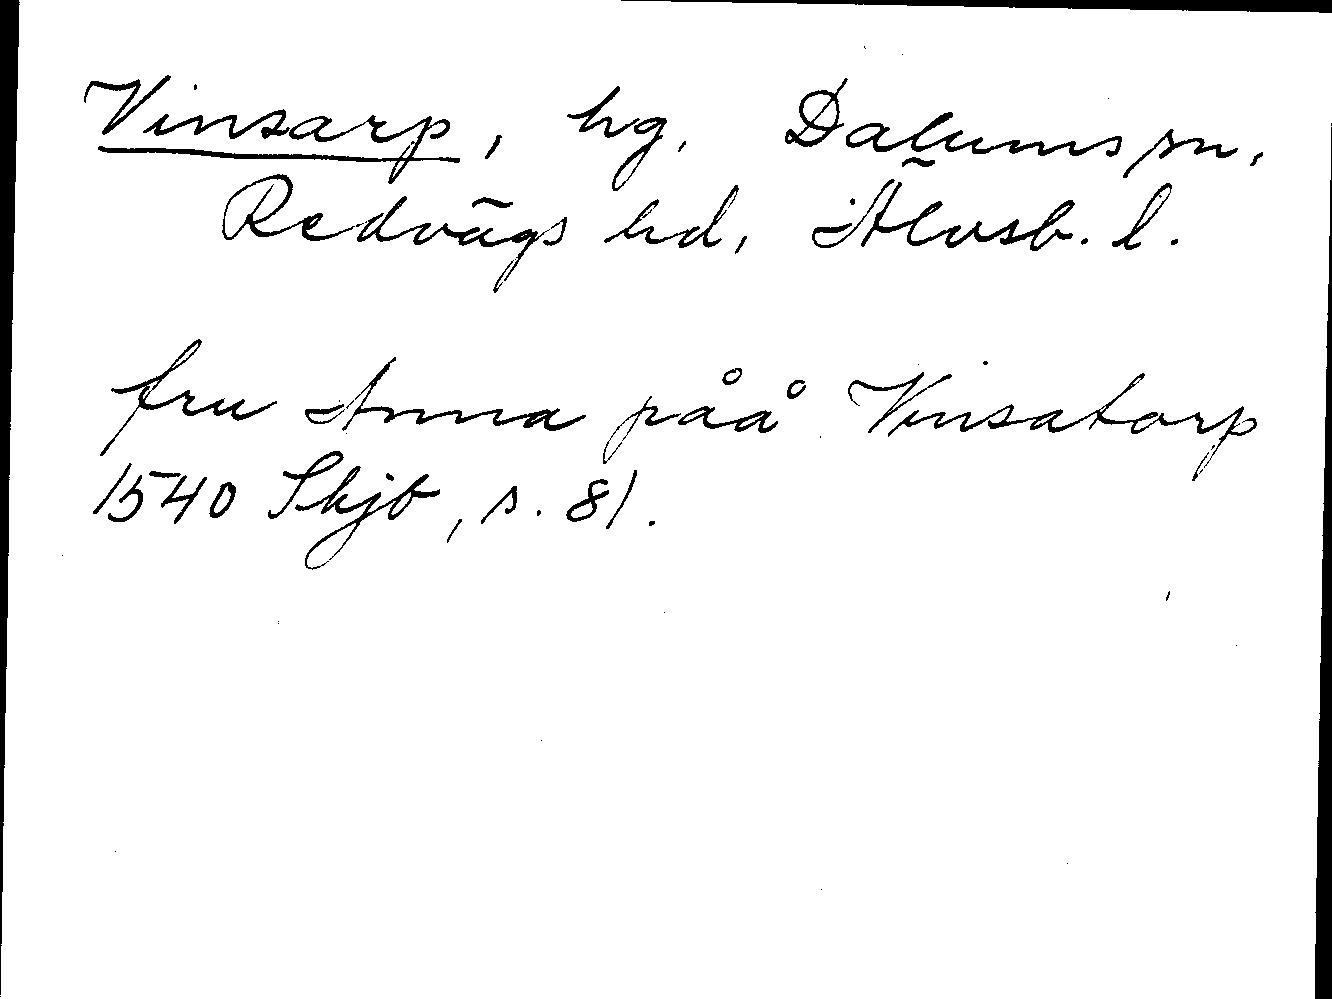 Vinsarp, hg, Dalums sn,
Redvägs hd, Älvsb. l.
fru Anna påå Vinsatorp
1540 Skjb, s. 81.